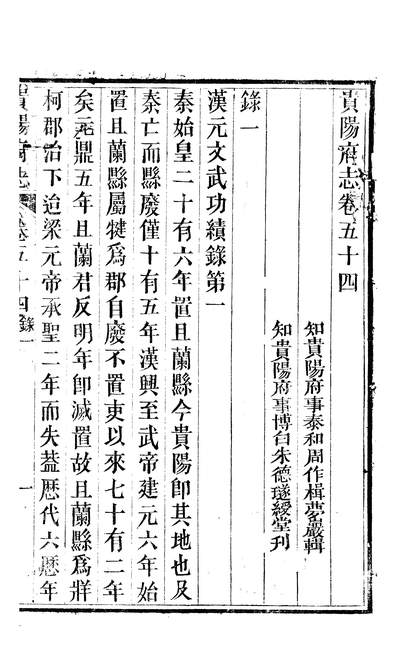 貴陽府志卷五十四
知貴陽府事泰和周作楫夢巖輯
知貴陽府事博白朱德璲綬堂刊
錄一
漢元文武功績錄第一
秦始皇二十有六年置且蘭縣今貴陽卽其地也及
秦亡而縣廢僅十有五年漢興至武帝建元六年始
置且蘭縣屬犍爲郡自廢不置吏以來七十有二年
矣元鼎五年且蘭君反明年卽滅置故且蘭縣爲牂
柯郡治下迨梁元帝承聖二年而失葢歴代六懸年
貴陽府志 卷五十四 錄一 一